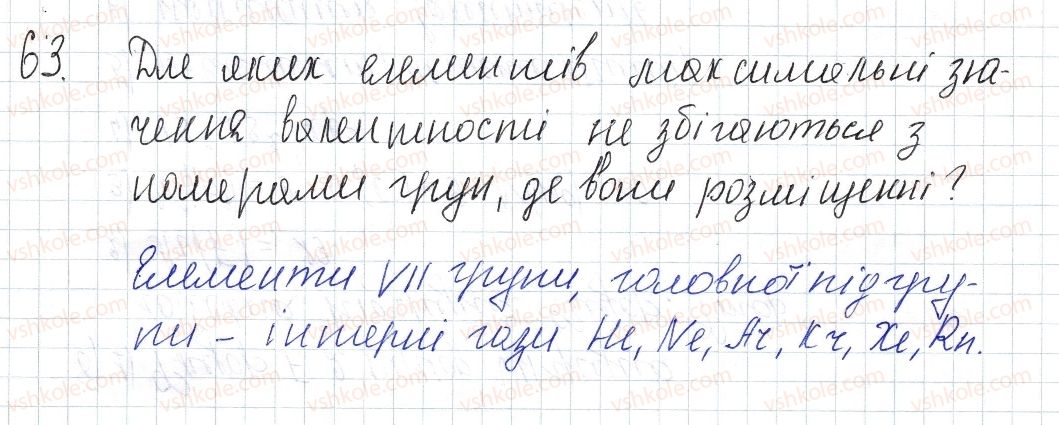 63. Для яких елементів максимальні зна-
чення валентності не збігаються з
номерами груп, де вони розміщенні?
Елементи VII групи, головної підгру-
пи - інтерні гази He, Ne, Ar, Kr, Xe, Rn.